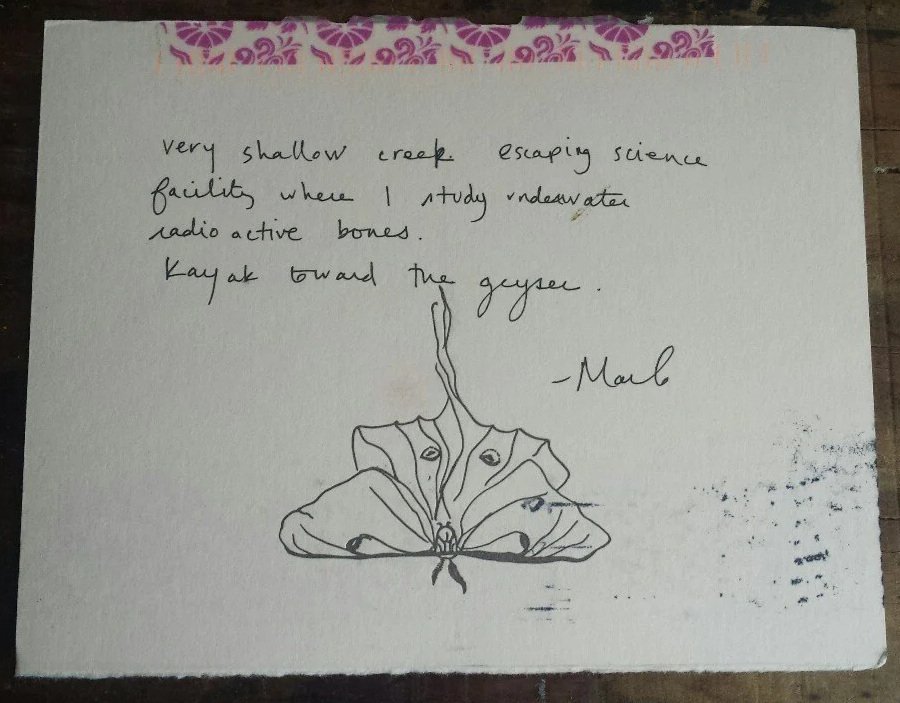 very shallow creek. escaping science
facility where I study underwater
radio active bones.
Kayak toward the geyser.